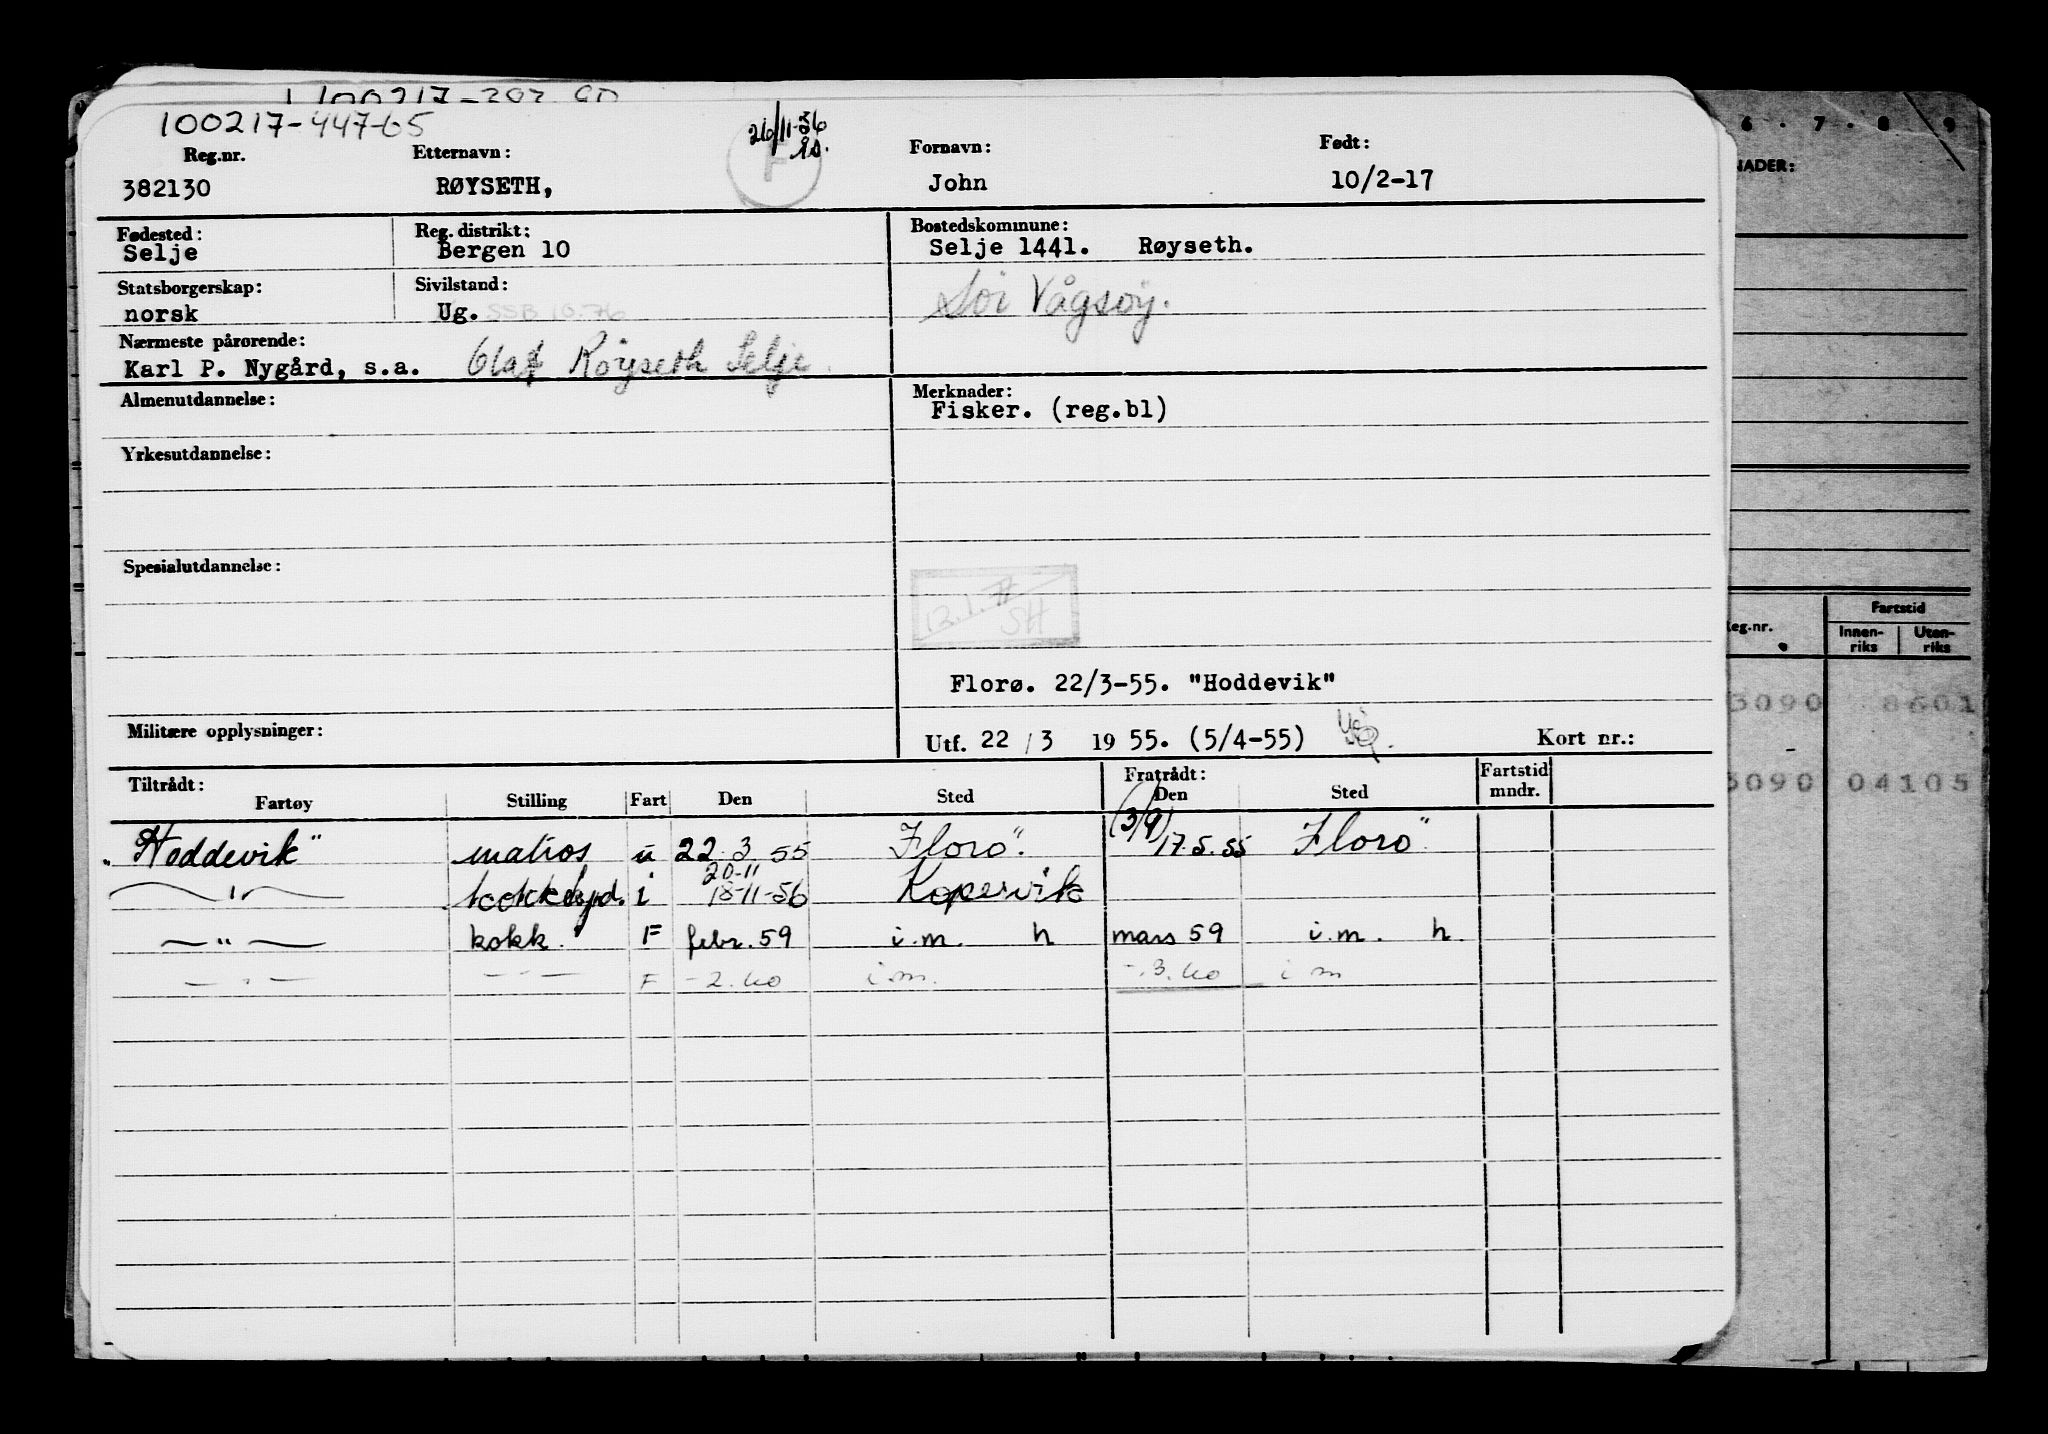 100217-447-65
26/11-56
Reg.nr. Etternavn: Fornavn: Født:
382130 RØYSETH, F John 10/2-17
Fødested: Reg. distrikt: Bostedskommune:
Selje Bergen 10 Selje 1441. Røyseth.
Statsborgerskap: Sivilstand: Sør Vågsøy.
norsk Ug. SSB 10.76
Nærmeste pårørende:
Karl P. Nygård, s.a. Olaf Røyseth Selje.
Almenutdannelse: Merknader:
Fisker. (reg.bl)
Yrkesutdannelse:
Spesialutdannelse:
12.1.77
SH
Florø. 22/3-55. "Hoddevik"
Militære opplysninger: Utf. 22 / 3 19 55. (5/4-55) Kort nr.:
Tiltrådt: Fratrådt: Fartstid
Fartøy Stilling Fart Den Sted Den Sted mndr.
(3/9)
„Hoddevik" matros u 22.3 55 Florø. 17.5.55 Florø
20-11
— " — i 18-11-56 Kopervik
— " — kokk. F febr. 59 i.m. h mars 59 i.m. h.
— " — — " — F -2.60 i m. -.3.60 i m
6 · 7 · 8 9
NADER:
Fartstid
eg.nr. Innen- Uten-
riks riks
3090 8601
-
3090 04105